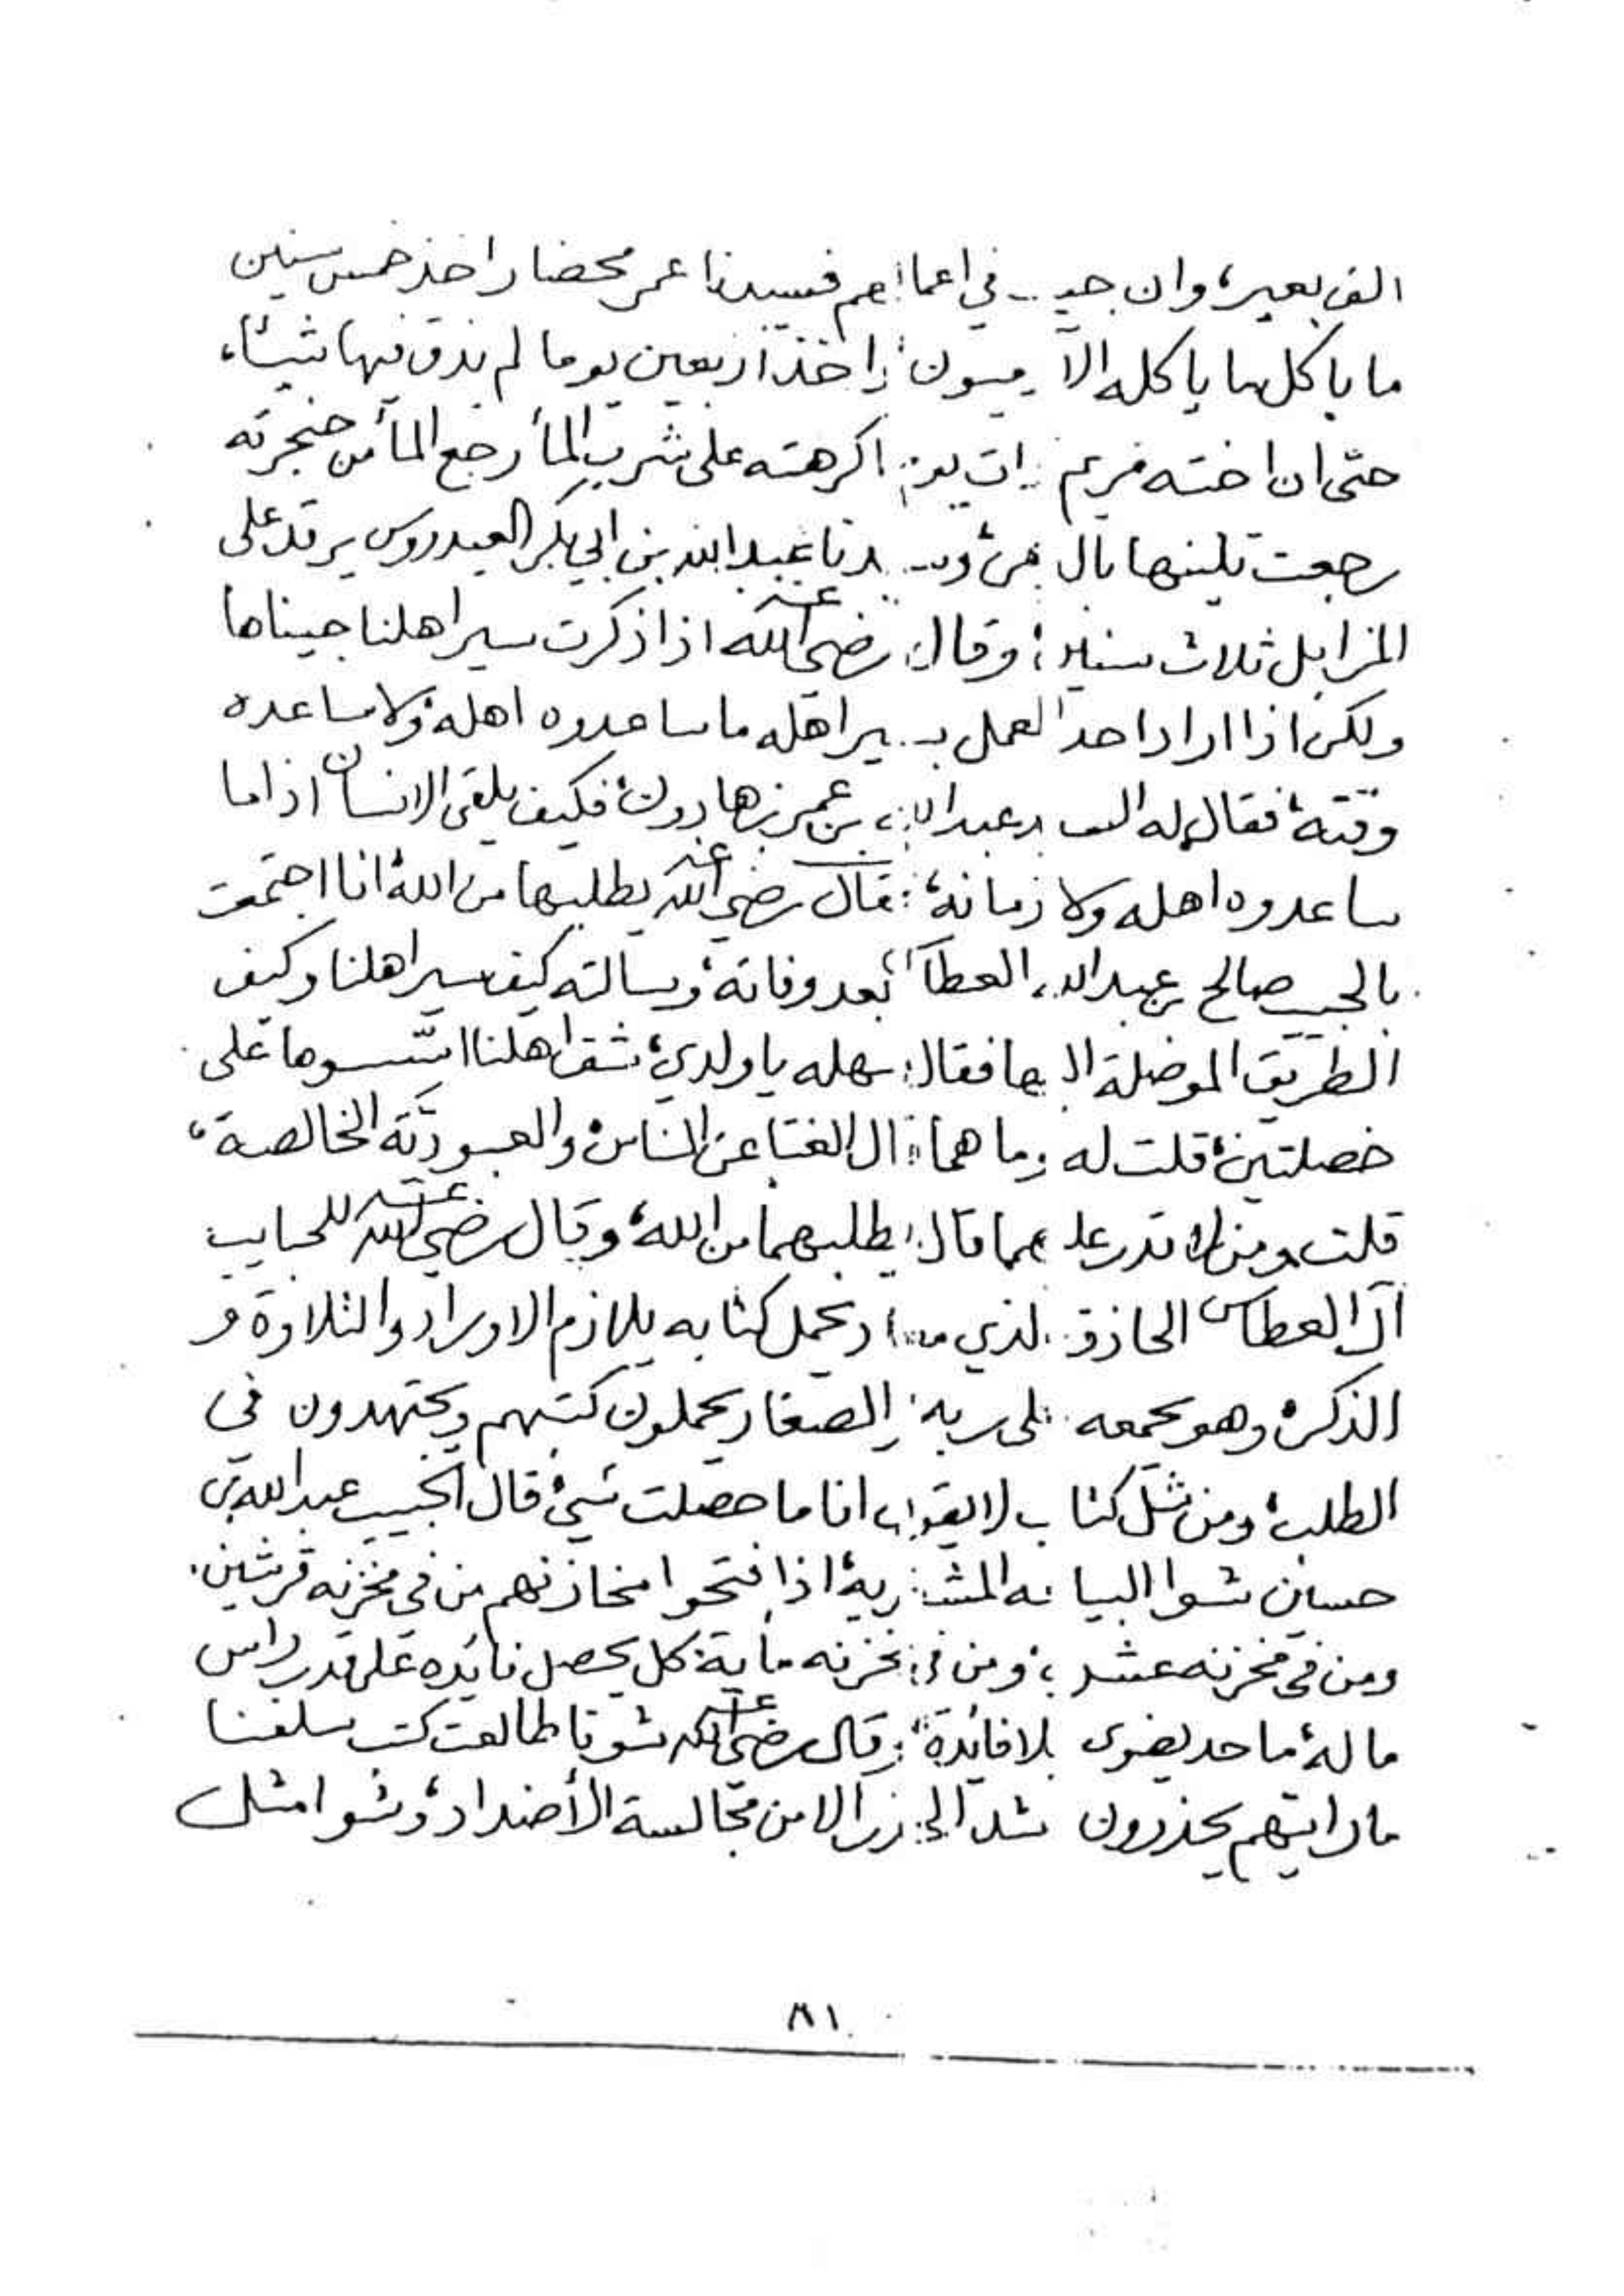 الف بعير، وان جيت في اعمالهم فسيدنا عمر محضار اخذ خمس سنين
ما ياكل ما ياكله الآدميون، واخذ اربعين يوما لم يذق فيها شيئا،
حتى ان اخته مريم ذات يوم اكرهته على شرب المأ رجع المأ من حنجرته
رجعت تلينها بال وسيدنا عبدالله بن ابي بكر العيدروس يرقد على
المزابل ثلاث سنين، وقال رضي الله عنه اذا ذكرت سير اهلنا جيناها
ولكن اذا اراد احد العمل بسير اهله ما ساعدوه اهله ولا ساعده
وقته، فقال له السيد عبدالله بن عمر بن هارون، فكيف يلقى الانسان اذا ما
ساعدوه اهله ولا زمانه، قال رضي الله عنه يطلبها من الله، انا اجتمعت
بالحبيب صالح بن عبدالله العطاس بعد وفاته، وسالته كيف سير اهلنا وكيف
الطريق الموصلة اليها فقال: سهله يا ولدي، شف اهلنا اسّسوها على
خصلتين، قلت له وما هما قال الغنا عن الناس، والعبوديّة الخالصة،
قلت ومن لا قدر عليهما قال يطلبهما من الله، وقال رضي الله عنه للحبايب
آل العطاس الحاذق الذي يحمل كتابه يلازم الاوراد والتلاوة و
الذكر، وهو يجمعه على ربه، الصغار يحملون كتبهم ويجتهدون في
الطلب، ومن شل كتاب لا يقول انا ما حصلت شيئ، قال الحبيب عبدالله بن
حسين شوا البياعه المشتريه، اذا فتحوا مخازنهم من في مخزنه قرشين
ومن في مخزنه عشره، ومن في مخزنه ماية، كل يحصل فائده على قدر راس
ماله، ما حد يضوى بلا فائدة، وقال رضي الله عنه شونا طالعت كتب سلفنا
ما رايتهم يحذرون اشد الحذر الا من مجالسة الأضداد، وشوا مثل
٨١